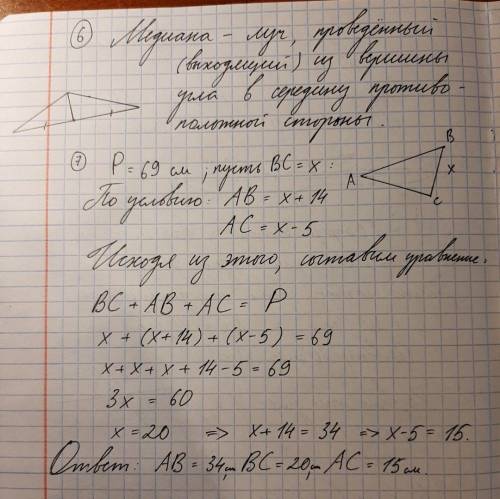 ⑥ Медиана – луч, проведённый
(выходящий) из вершины
угла в середину противо-
положной стороны.
⑦ P = 69 см ; пусть BC = x :
По условию: AB = x + 14
AC = x - 5
A B C x
Исходя из этого, составим уравнение.
BC + AB + AC = P
x + (x+14) + (x-5) = 69
x + x + x + 14 - 5 = 69
3x = 60
x = 20 => x + 14 = 34 => x - 5 = 15.
Ответ: AB = 34см BC = 20см AC = 15см.